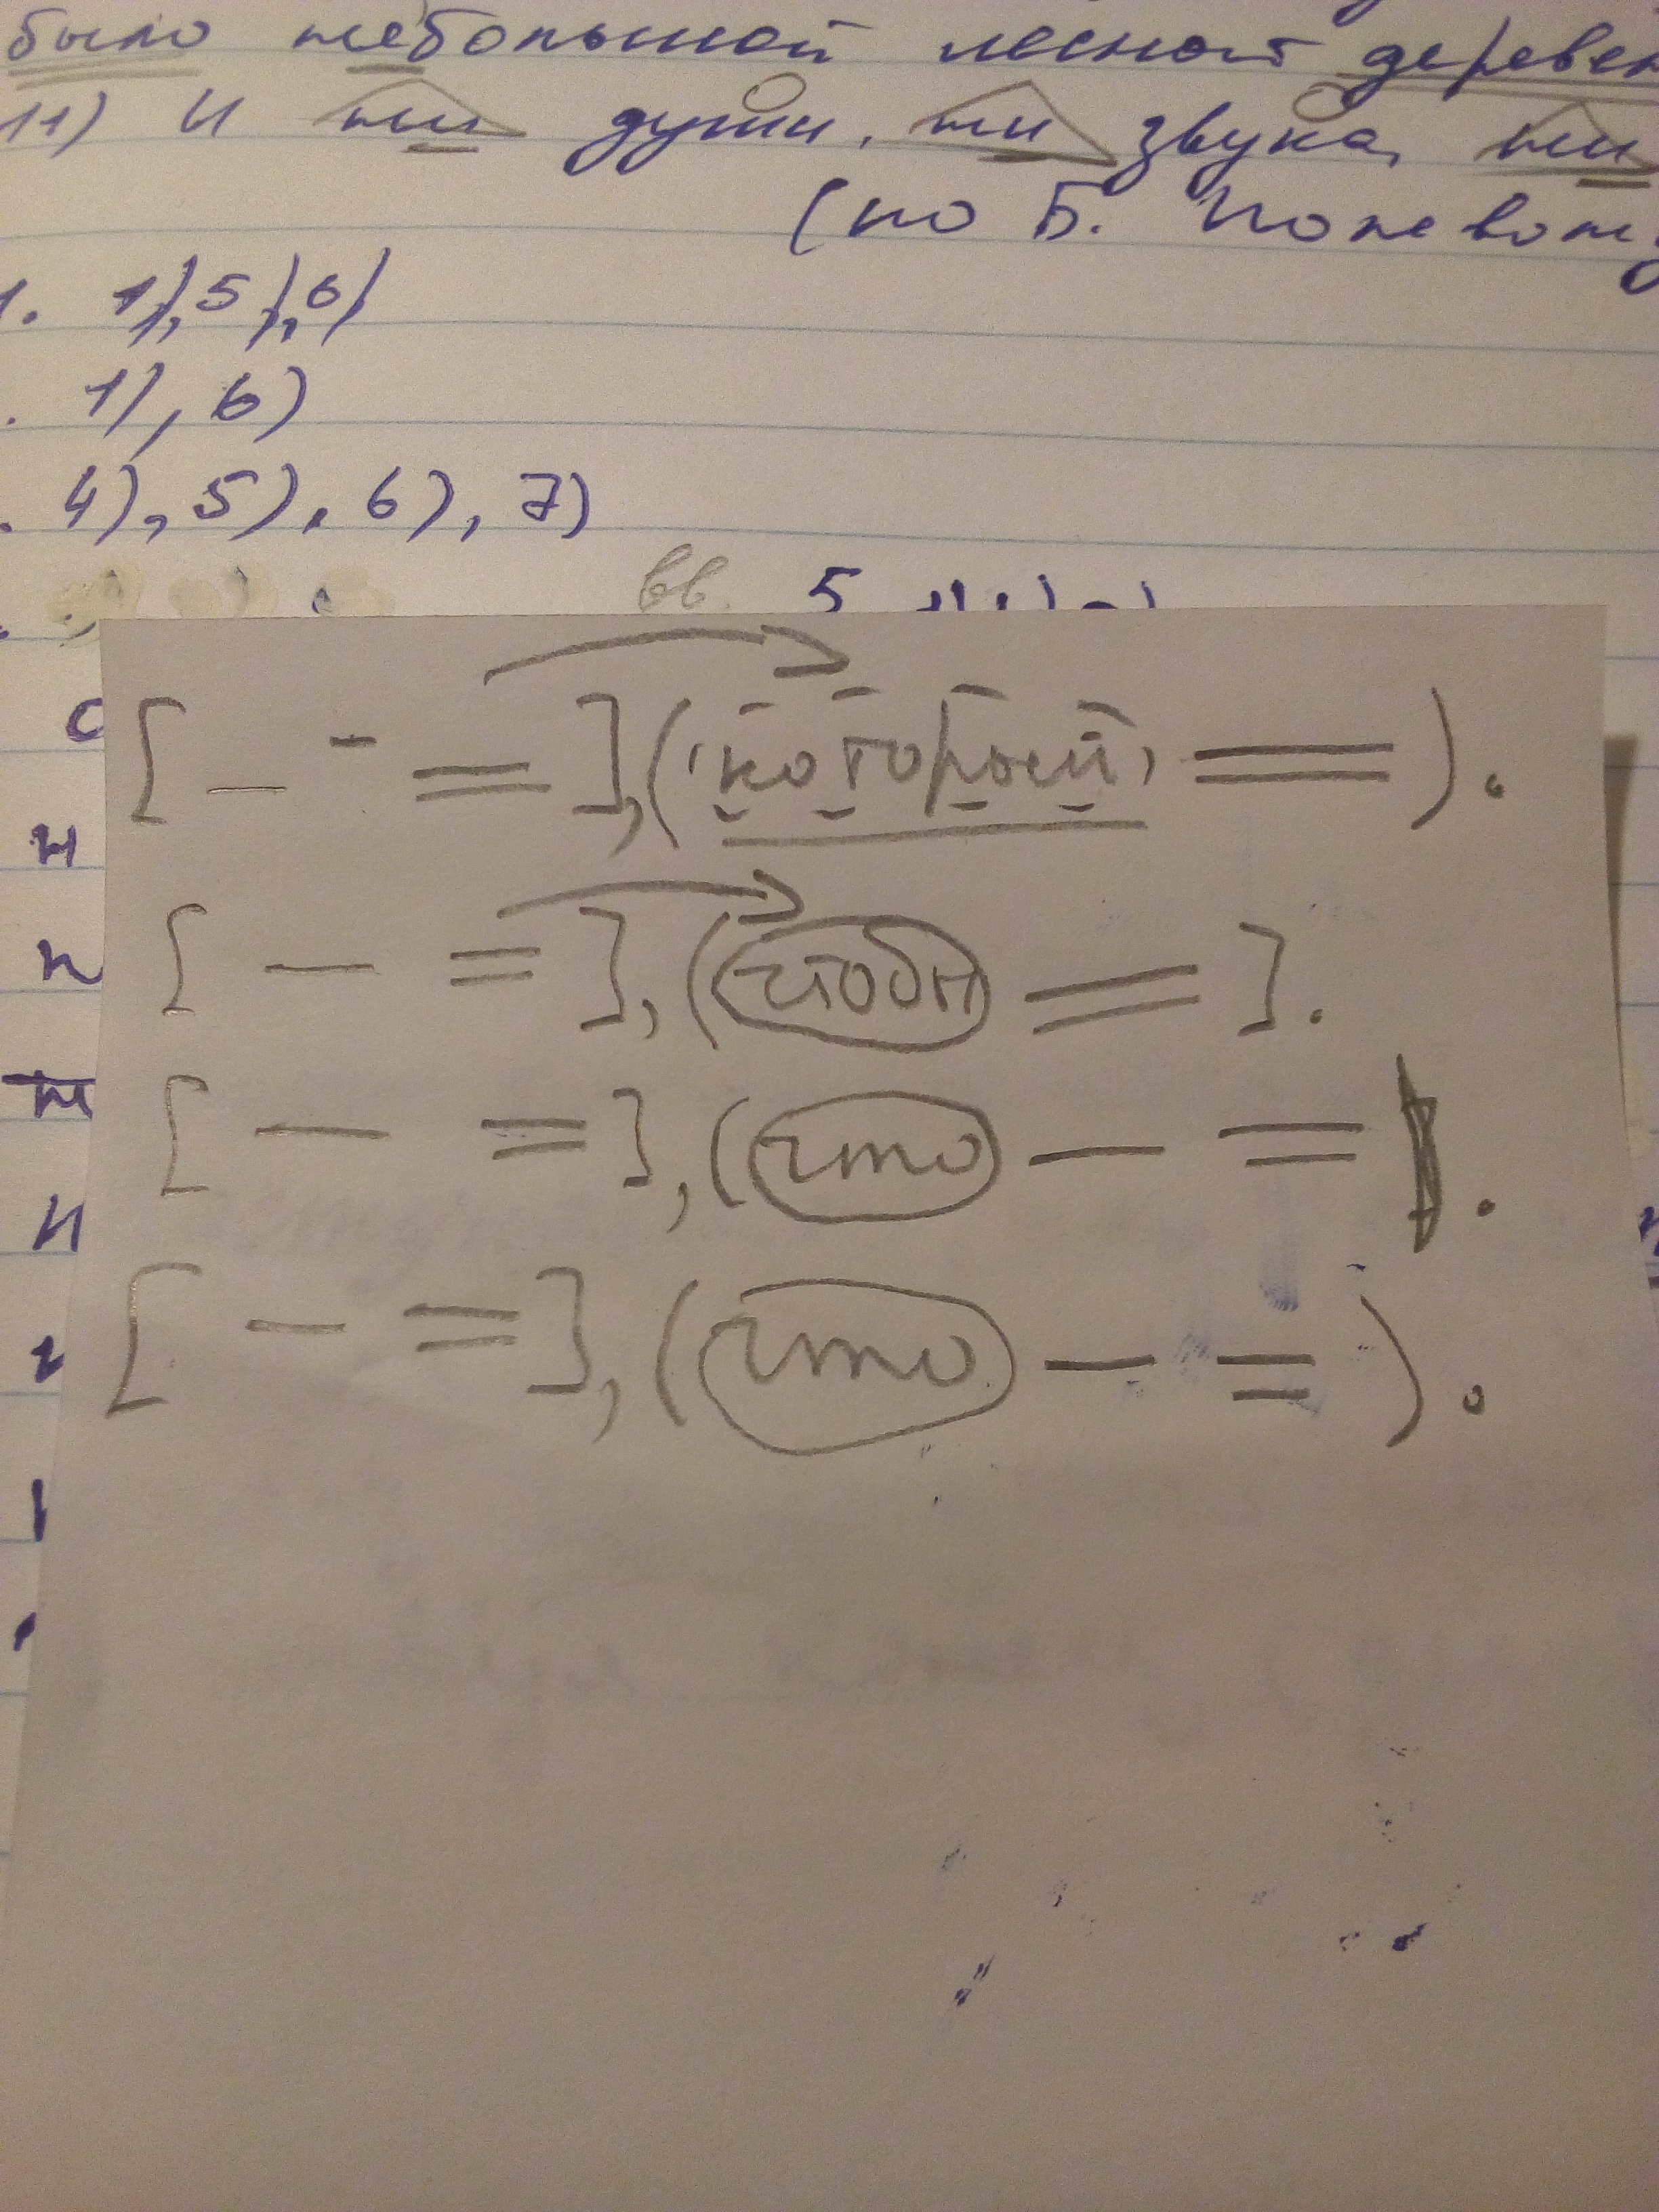 было небольшой лесной деревен
11) И ни души, ни звука, ни
(по Б. Полевому
1. 1), 5), 6)
. 1), 6)
. 4), 5), 6), 7)
вв. 5
[ — - = ], ( который, = ).
[ — = ], ( чтобы = ].
[ — = ], ( что — = ).
[ — = ], ( что — = ).